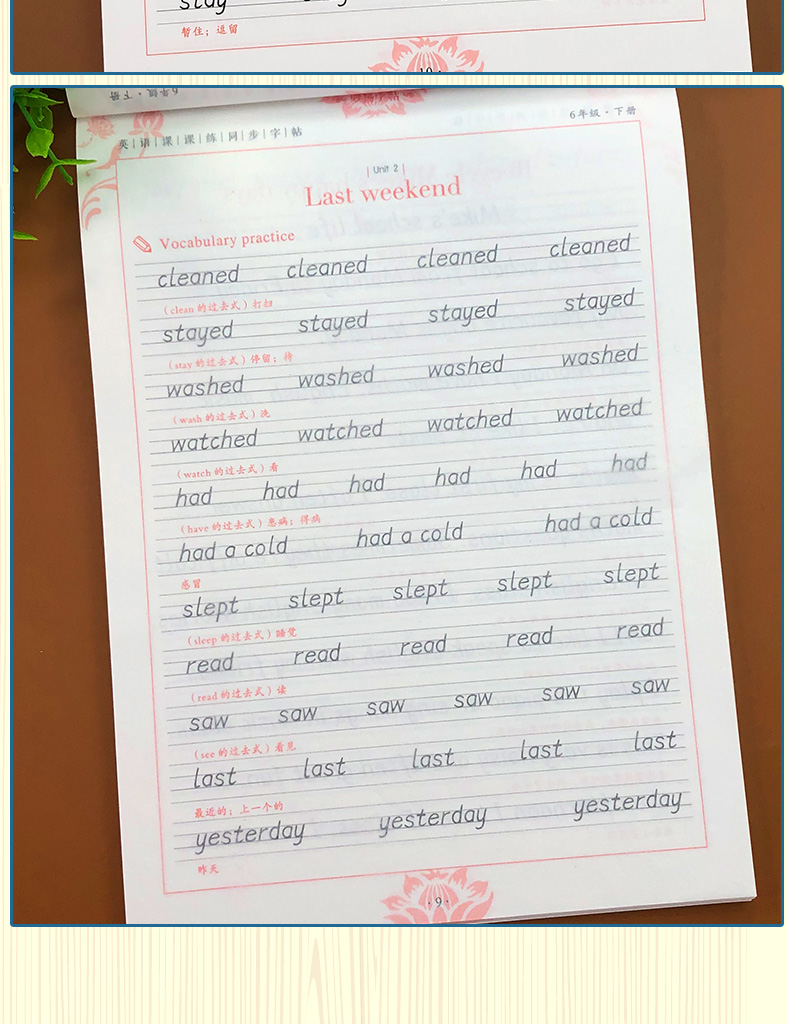 stay
暂住；逗留
·10·
6年级·下册
英|语|课|课|练|同|步|字|帖
6年级·下册
| Unit 2 |
Last weekend
Vocabulary practice
cleaned cleaned cleaned cleaned
（clean 的过去式）打扫
stayed stayed stayed stayed
（stay 的过去式）停留；待
washed washed washed washed
（wash 的过去式）洗
watched watched watched watched
（watch 的过去式）看
had had had had had had
（have 的过去式）患病；得病
had a cold had a cold had a cold
感冒
slept slept slept slept slept
（sleep 的过去式）睡觉
read read read read read
（read 的过去式）读
saw saw saw saw saw saw
（see 的过去式）看见
last last last last last
最近的；上一个的
yesterday yesterday yesterday
昨天
·9·